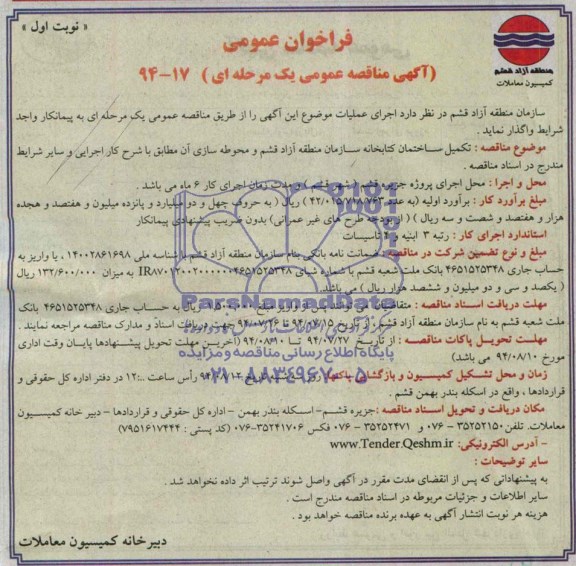 « نوبت اول »
فراخوان عمومی
(آگهی مناقصه عمومی یک مرحله ای ) ۱۷-۹۴
منطقه آزاد قشم
کمیسیون معاملات
سازمان منطقه آزاد قشم در نظر دارد اجرای عملیات موضوع این آگهی را از طریق مناقصه عمومی یک مرحله ای به پیمانکار واجد
شرایط واگذار نماید .
موضوع مناقصه : تکمیل ساختمان کتابخانه سازمان منطقه آزاد قشم و محوطه سازی آن مطابق با شرح کار اجرایی و سایر شرایط
مندرج در اسناد مناقصه .
محل و اجرا : محل اجرای پروژه جزیره قشم مدت زمان اجرای کار ۶ ماه می باشد .
مبلغ برآورد کار : برآورد اولیه (به عدد ۴۲/۰۱۵/۷۱۸/۷۶۳ ) ریال ( به حروف چهل و دو میلیارد و پانزده میلیون و هفتصد و هجده
هزار و هفتصد و شصت و سه ریال ) ( از بودجه طرح های غیر عمرانی) بدون ضریب پیشنهادی پیمانکار
استاندارد اجرای کار : رتبه ۳ ابنیه و ۴ تاسیسات
مبلغ و نوع تضمین شرکت در مناقصه : ضمانت نامه بانکی بنام سازمان منطقه آزاد قشم با شناسه ملی ۱۴۰۰۲۸۶۱۶۹۸ ، یا واریز به
حساب جاری ۴۶۵۱۵۲۵۳۴۸ بانک ملت شعبه قشم با شماره شبای به میزان ۱۳۲/۶۰۰/۰۰۰ ریال
( یکصد و سی و دو میلیون و ششصد هزار ریال ) می باشد.
مهلت دریافت اسناد مناقصه : متقاضیان می توانند پس از واریز مبلغ ریال به حساب جاری ۴۶۵۱۵۲۵۳۴۸ بانک
ملت شعبه قشم به نام سازمان منطقه آزاد قشم از تاریخ ۹۴/۰۷/۱۵ تا ۹۴/۰۷/۲۶ جهت دریافت اسناد و مدارک مناقصه مراجعه نمایند .
مهلت تحویل پاکات مناقصه : از تاریخ ۹۴/۰۷/۲۷ تا ۹۴/۰۸/۱۰ (آخرین مهلت تحویل پیشنهادها پایان وقت اداری
مورخ ۹۴/۰۸/۱۰ می باشد)
زمان و محل تشکیل کمیسیون و بازگشایی پاکتها: روز رأس ساعت ۱۲:۰۰ در دفتر اداره کل حقوقی و
قراردادها ، واقع در اسکله بندر بهمن قشم .
مکان دریافت و تحویل اسناد مناقصه :جزیره قشم- اسکله بندر بهمن - اداره کل حقوقی و قراردادها - دبیر خانه کمیسیون
معاملات. تلفن ۳۵۲۵۲۱۵۰ - ۰۷۶ و ۳۵۲۵۲۴۷۱ - ۰۷۶ فکس ۳۵۲۴۱۷۰۶-۰۷۶ (کد پستی : ۷۹۵۱۶۱۷۴۴۴)
- آدرس الکترونیکی: www.Tender.Qeshm.ir
سایر توضیحات :
به پیشنهاداتی که پس از انقضای مدت مقرر در آگهی واصل شوند ترتیب اثر داده نخواهد شد .
سایر اطلاعات و جزئیات مربوطه در اسناد مناقصه مندرج است .
هزینه هر نوبت انتشار آگهی به عهده برنده مناقصه خواهد بود .
دبیرخانه کمیسیون معاملات
ParsNamadData
پایگاه اطلاع رسانی مناقصه و مزایده
۰۲۱-۸۸۳۴۹۶۷۰-۵